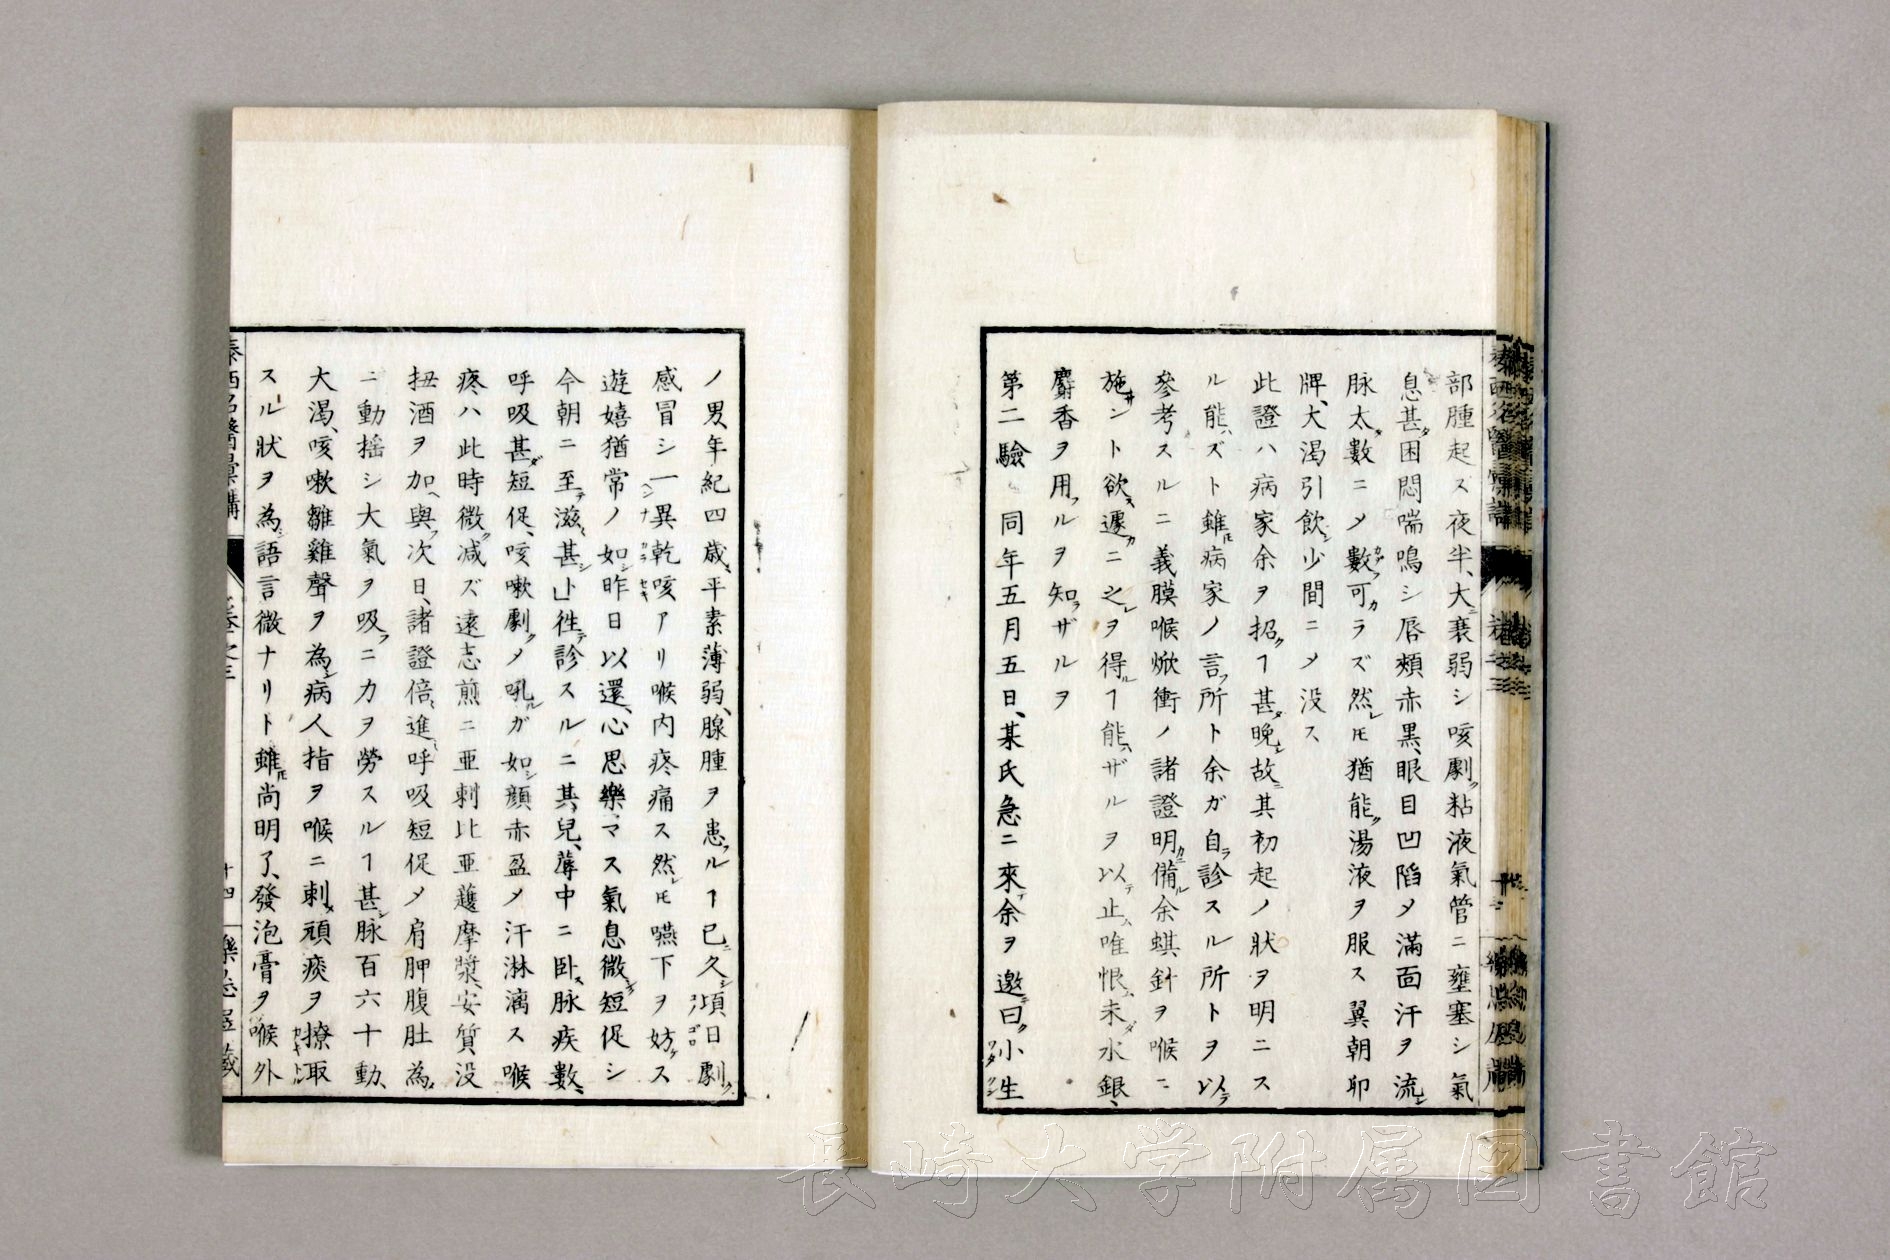 部腫起ス夜半、大ニ衰弱シ咳劇ク粘液氣管ニ壅塞シ氣
息甚タ困悶喘鳴シ唇頰赤黒、眼目凹陷メ滿面汗ヲ流シ
脉太タ數ニメ數カゾフ可カラズ然レモ猶能ク湯液ヲ服ス翼朝卯
牌、大渇引飲シ少間ニメ没ス
此證ハ病家余ヲ招クヿ甚タ晩シ故ニ其初起ノ狀ヲ明ニス
ル能ハズト雖モ病家ノ言フ所ト余ガ自ラ診スル所トヲ以テ
參考スルニ義膜喉焮衝ノ諸證明カニ備ル余蜞針ヲ喉ニ
施サント欲ス遽カニ之レヲ得ルヿ能ハザルヲ以テ止ム唯恨ム未タ水銀、
麝香ヲ用フルヲ知ラザルヲ
第二驗 同年五月五日、某氏急ニ來テ余ヲ邀ニ曰ク小生
ノ男、年紀四歳、平素薄弱、腺腫ヲ患フルヿ已ニ久シ頃日劇ク
感冒シ一ヘンナ異乾咳カラセキアリ喉内疼痛ス然レモ嚥下ヲ妨ケス
遊嬉猶常ノ如シ昨日以還、心思樂マス氣息微シ短促シ
今朝ニ至テ滋〻甚シト」徃テ診スルニ其兒、蓐中ニ卧ス脉疾數、
呼吸甚ダ短促、咳嗽劇クメ吼ルガ如シ顔赤盈メ汗淋漓ス喉
疼ハ此時微ク减ズ遠志煎ニ亜刺比亜護摩漿、安質没
扭酒ヲ加ヘ與フ次日、諸證倍〻進ミ呼吸短促メ肩胛腹肚為メ
ニ動揺シ大氣ヲ吸フニ力ヲ勞スルヿ甚シ脉百六十動、
大渇、咳嗽雛雞聲ヲ為シ病人指ヲ喉ニ刺メ頑痰ヲ撩取カキトル
スル狀ヲ為ス語言微ナリト雖モ尚明了、發泡膏ヲ喉外
泰西名醫彙講
卷之三
十四
長崎大学附属図書館